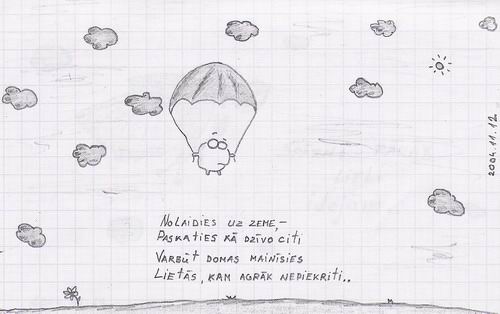 NOLAIDIES UZ ZEME,–
PASKATIES KĀ DZĪVO CITI
VARBŪT DOMAS MAINĪSIES
LIETĀS, KAM AGRĀK NEPIEKRITI..
2004.11.12